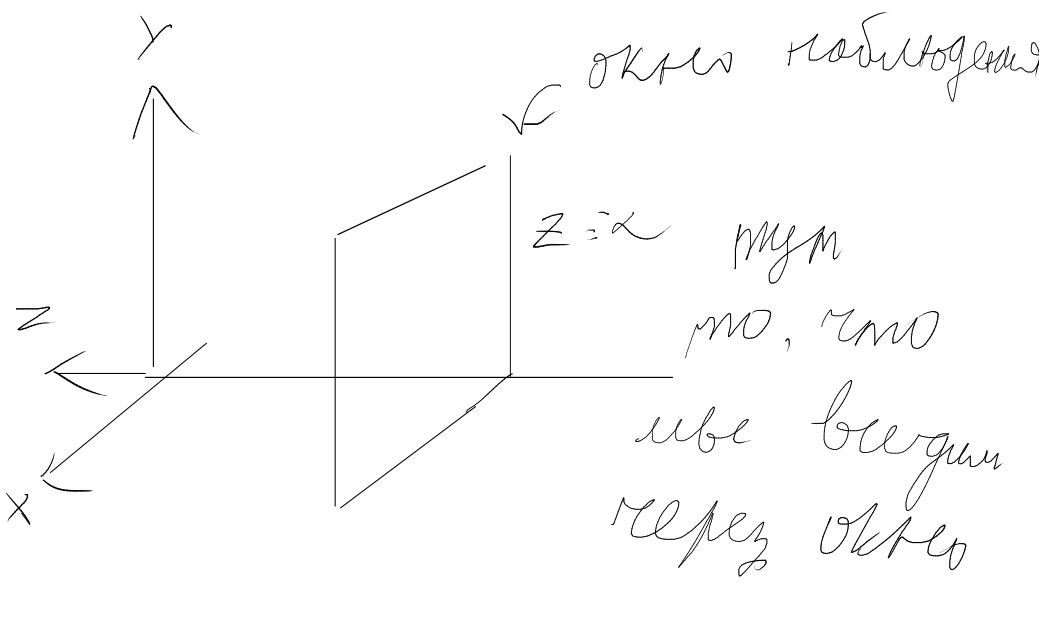 Y
окно наблюдения
z = α
тут
z
то, что
мы видим
через окно
x